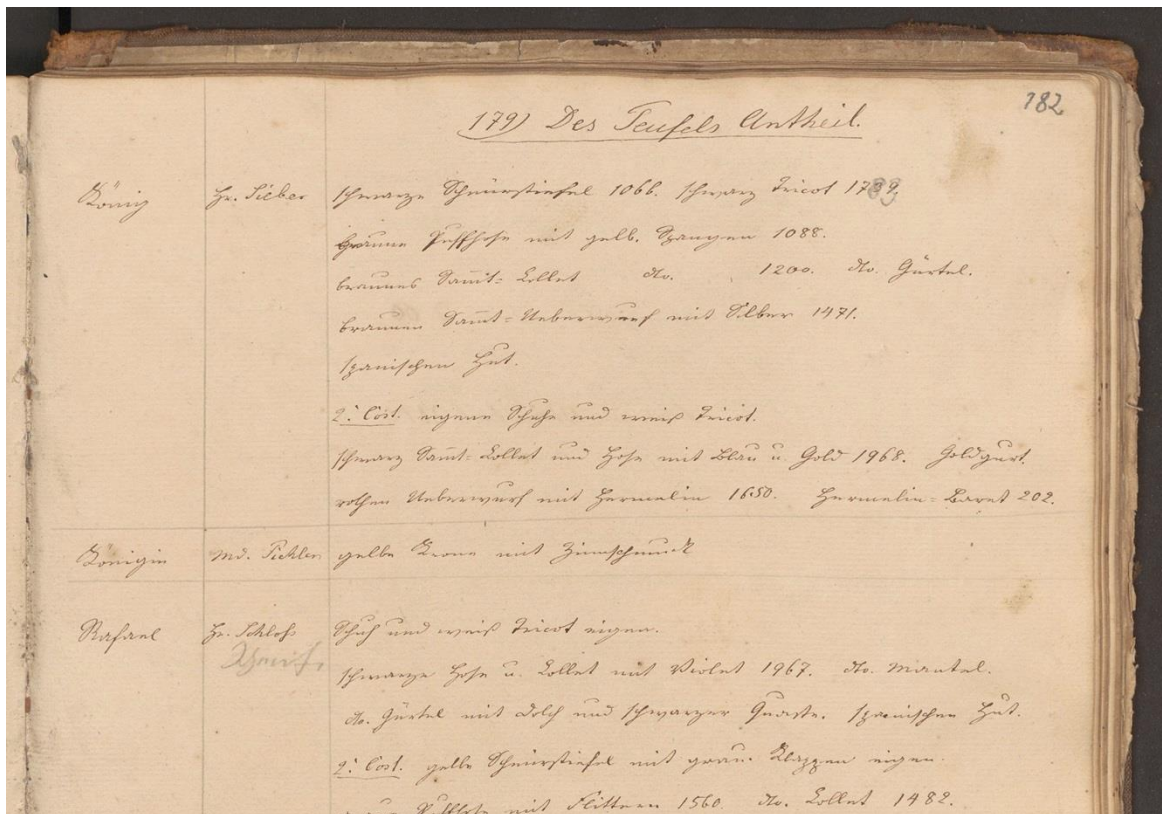 182
179) Des Teufels Antheil.
König Hr. Sieber schwarze Schnürstiefel 1066. schwarz Tricot
braune Puffhose mit gelb. Spangen 1088.
braunes Samt-Collet do. 1200. do. Gürtel.
braunen Samt-Ueberwurf mit Silber 1471.
spanischen Hut.
2. Cost. eigene Schuhe und weiß Tricot.
schwarz Samt-Collet und Hose mit Blau u. Gold 1968. Goldgurt.
rothen Ueberwurf mit Hermelin 1650. Hermelin-Baret 202.
Königin Md. Pichler gelbe Krone mit Zinnschmuck
Rafael Hr. Schloß Schuh und weiß Tricot eigen.
schwarze Hose u. Collet mit Violet 1967. do. Mantel.
do. Gürtel mit Dolch und schwarzer Quaste. spanischen Hut.
2. Cost. gelbe Schnürstiefel mit grau. Klappen eigen.
Puffhose mit Flittern 1560. do. Collet 1482.